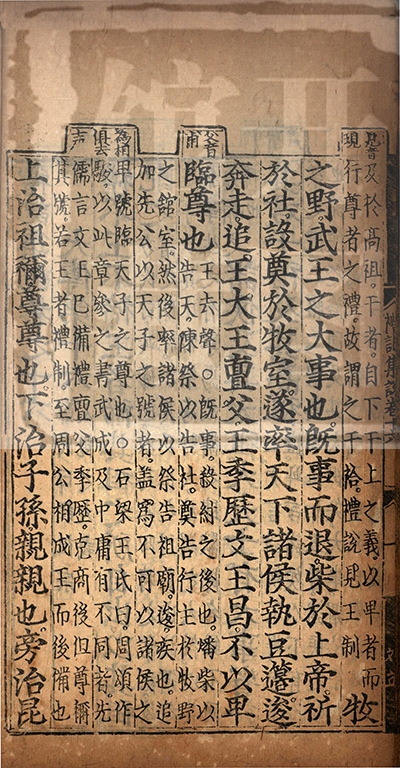 見音
現
及於高祖。干者。自下干上之義以卑者而
行尊者之禮故謂之干祫。禮說見王制
牧
之野。武王之大事也。旣事而退。柴於上帝。祈
於社。設奠於牧室。遂率天下諸侯執豆籩。逡
奔走。追王大王亶父。王季歷文王昌。不以卑
父音
甫
臨尊也
王去聲。○旣事。殺紂之後也。燔柴以
告天。陳祭以告社。奠告行主於牧野
之館室。然後率諸侯以祭告祖廟。逡。疾也。追
加先公以天子之號者。盖爲不可以諸侯之
為稱
俱去
声
卑號臨天子之尊也。○石梁王氏曰。周頌作
駿。以此章參之書武成及中庸有不同者。先
儒言文王已備禮亶父季歷。克商後但尊稱
其號。若王者禮制。至周公相成王而後備也
上治祖禰尊尊也。下治子孫。親親也。旁治昆